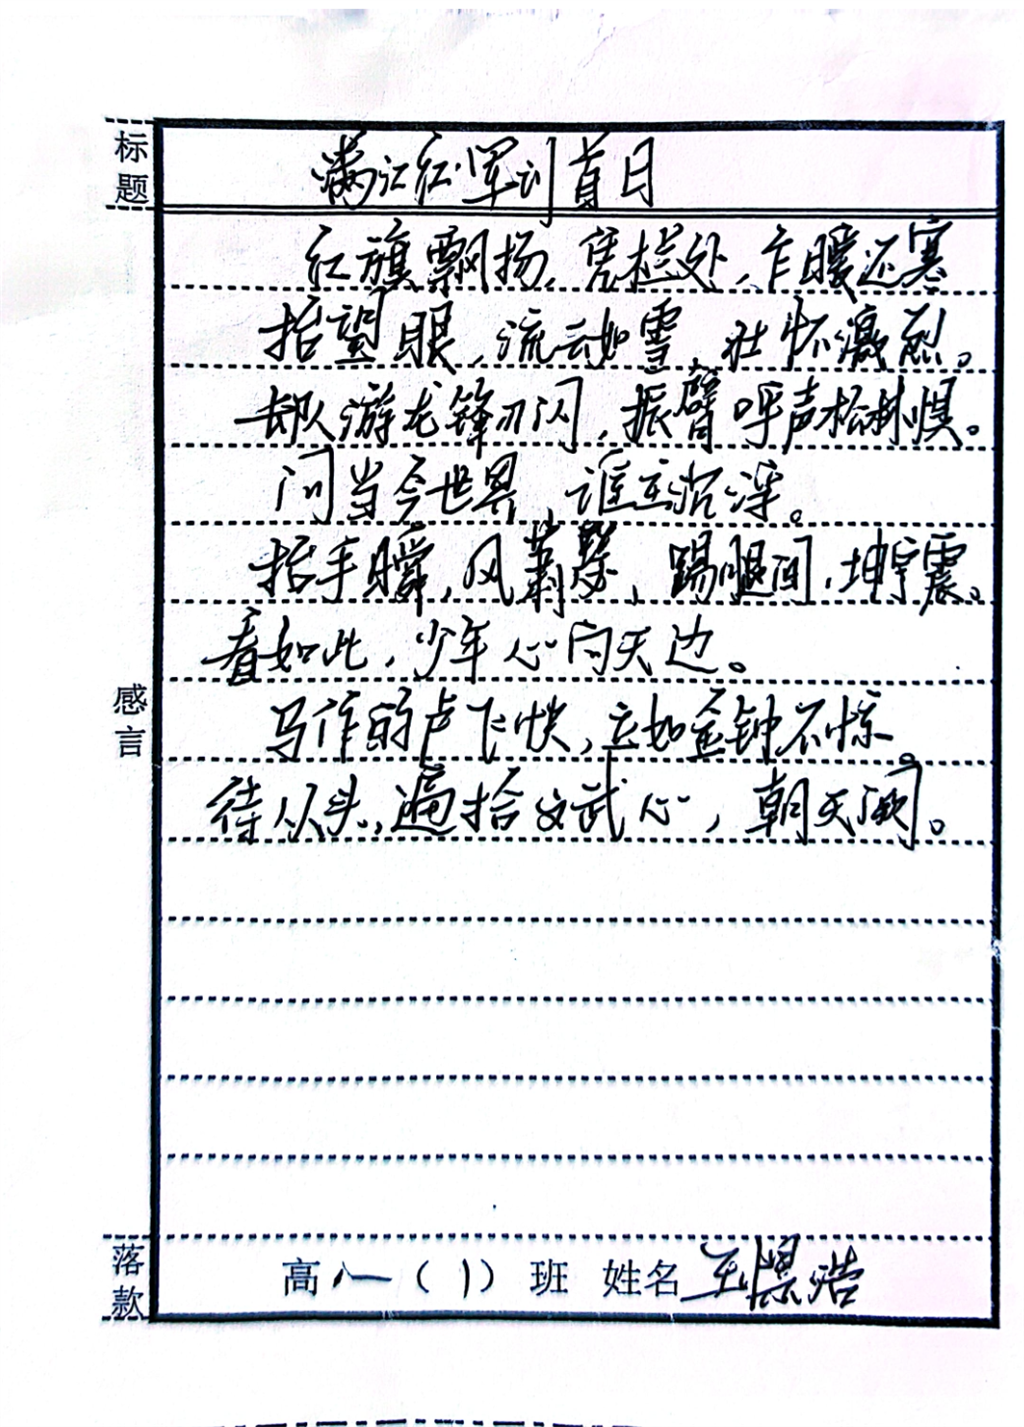 标题
满江红·军训首日
红旗飘扬,凭栏处,乍暖还寒
抬望眼,流云如雪,壮怀激烈。
却从游龙锋刃闪,振臂呼声松林惧。
问当今世界,谁主沉浮。
抬手瞬,风,踢腿间,坤宇震。
看如此,少年心向天边。
感言
马作的卢飞快,立如金钟不惊。
待从头,遍拾文武心,朝天阙。
落款
高(1)班 姓名 王憬浩